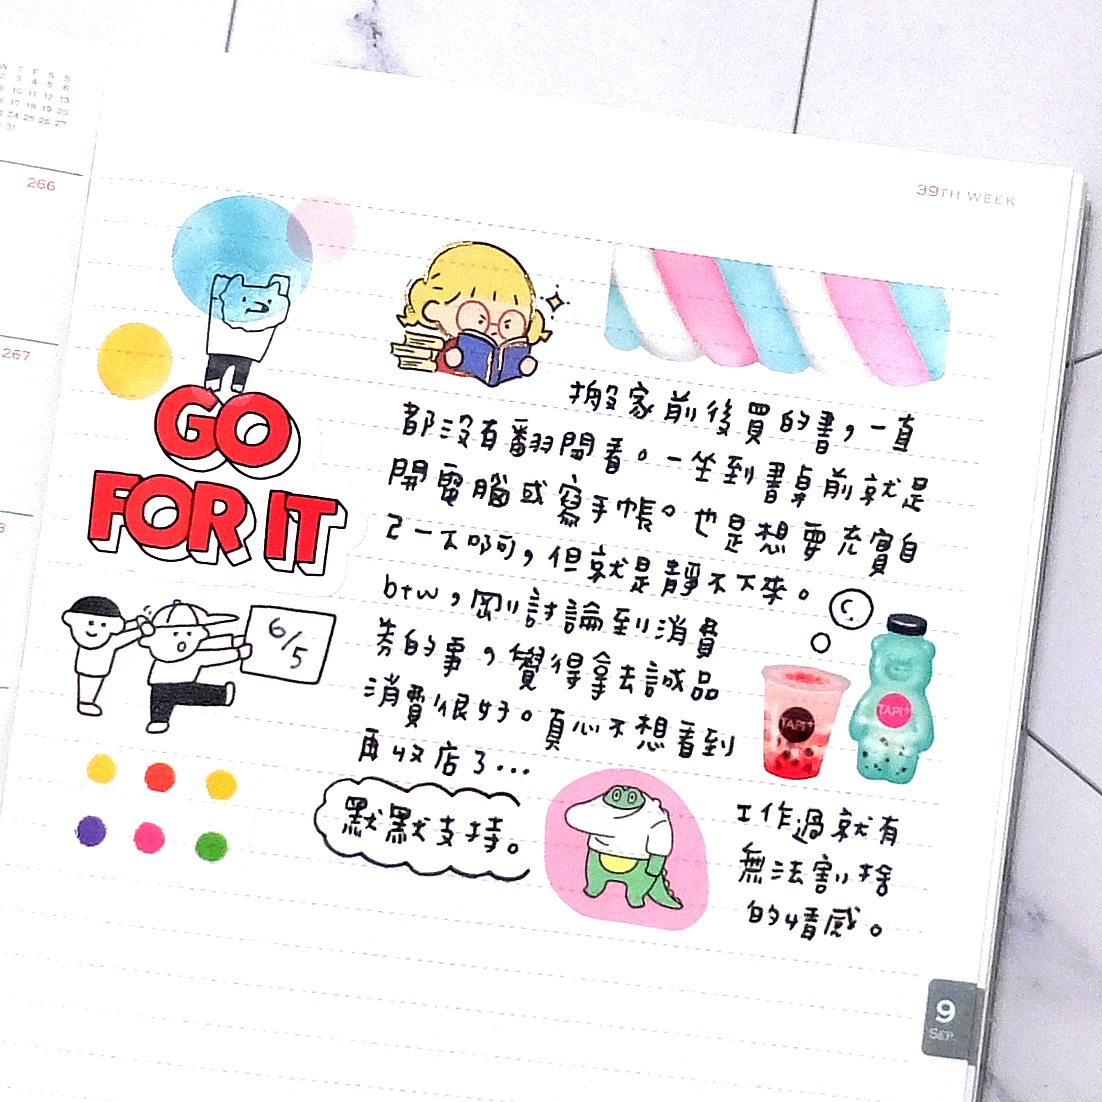 W T F S S
2 3 4 5 6
9 10 11 12 13
16 17 18 19 20
24 25 26 27
31
266
267
39TH WEEK
GO
FOR IT
6/5
搬家前後買的書，一直
都沒有翻開看。一坐到書桌前就是
開電腦或寫手帳。也是想要充實自
己一下啊，但就是靜不下來。
btw，剛討論到消費
券的事，覺得拿去誠品
消費很好。真心不想看到
再收店了...
默默支持。
TAPI
TAPI
工作過就有
無法割捨
的情感。
9
SEP.